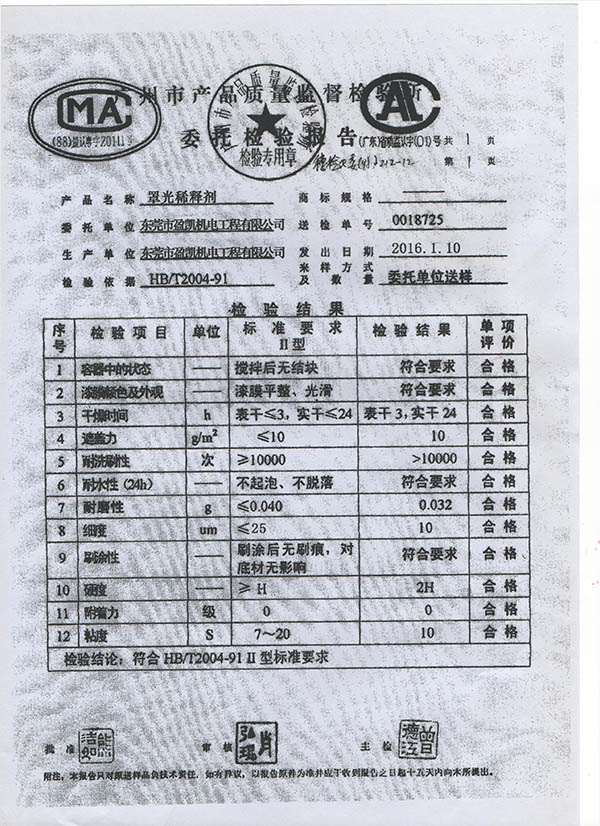 广州市产品质量监督检验所
委托检验报告
CMA
(88)量认粤字Z0111号
检验专用章
CAL
(广东)省质监认字(01)号 共 1 页
第 1 页
产品名称 罩光稀释剂 商标规格 ——
委托单位 东莞市盈凯机电工程有限公司 送检单号 0018725
生产单位 东莞市盈凯机电工程有限公司 发出日期 2016.1.10
检验依据 HB/T2004-91 采样方式及数量 委托单位送样
检验结果
序号 检验项目 单位 标准要求 II型 检验结果 单项评价
1 容器中的状态 —— 搅拌后无结块 符合要求 合格
2 漆膜颜色及外观 —— 漆膜平整、光滑 符合要求 合格
3 干燥时间 h 表干≤3,实干≤24 表干3,实干24 合格
4 遮盖力 g/m² ≤10 10 合格
5 耐洗刷性 次 ≥10000 >10000 合格
6 耐水性(24h) —— 不起泡、不脱落 符合要求 合格
7 耐磨性 g ≤0.040 0.032 合格
8 细度 um ≤25 10 合格
9 刷涂性 —— 刷涂后无刷痕,对底材无影响 符合要求 合格
10 硬度 —— ≥H 2H 合格
11 附着力 级 0 0 合格
12 粘度 S 7~20 10 合格
检验结论:符合HB/T2004-91 II型标准要求
批准 审核 主检
附注:本报告只对原送样品负技术责任,如有异议,以报告原件为准并应于收到报告之日起十五天内向本所提出。